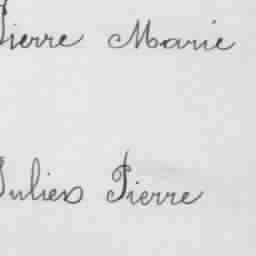 Pierre Marie
Julien Pierre